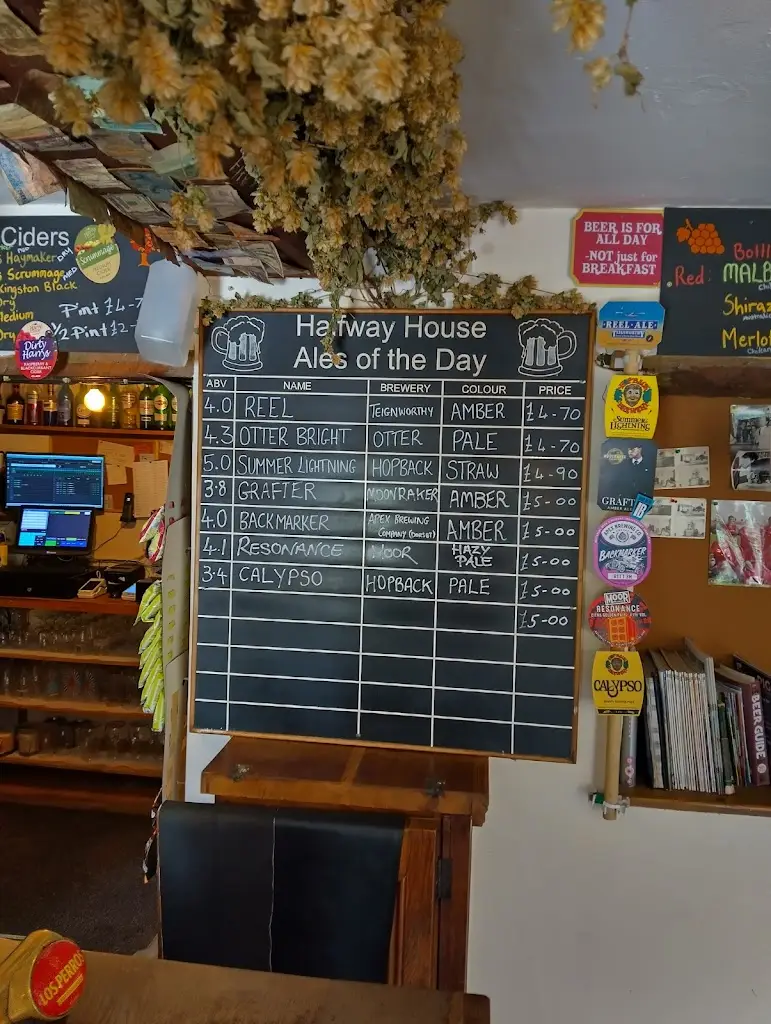 Ciders
Haymaker DRY
Scrummage MED
Kingston Black
Dry
Medium
Dry
Pint £4-7
1/2 Pint £2-
Scrummage
Dirty
Harrys
RASPBERRY &
BLACKCURRANT
Halfway House
Ales of the Day
ABV NAME BREWERY COLOUR PRICE
4.0 REEL TEIGNWORTHY AMBER £4-70
4.3 OTTER BRIGHT OTTER PALE £4-70
5.0 SUMMER LIGHTNING HOPBACK STRAW £4-90
3.8 GRAFTER MOONRAKER AMBER £5-00
4.0 BACKMARKER APEX BREWING COMPANY (DORSET) AMBER £5-00
4.1 RESONANCE MOOR HAZY PALE £5-00
3.4 CALYPSO HOPBACK PALE £5-00
£5-00
BEER IS FOR
ALL DAY
-NOT just for
BREAKFAST
Red:
MALB
Shiraz
Merlot
REEL·ALE
TEIGNWORTHY
SUMMER
LIGHTNING
GRAFT
APEX BREWING
BACKMARKER
BEST BITTER
MOOR
RESONANCE
CALYPSO
BEER GUIDE
LOS PERROS